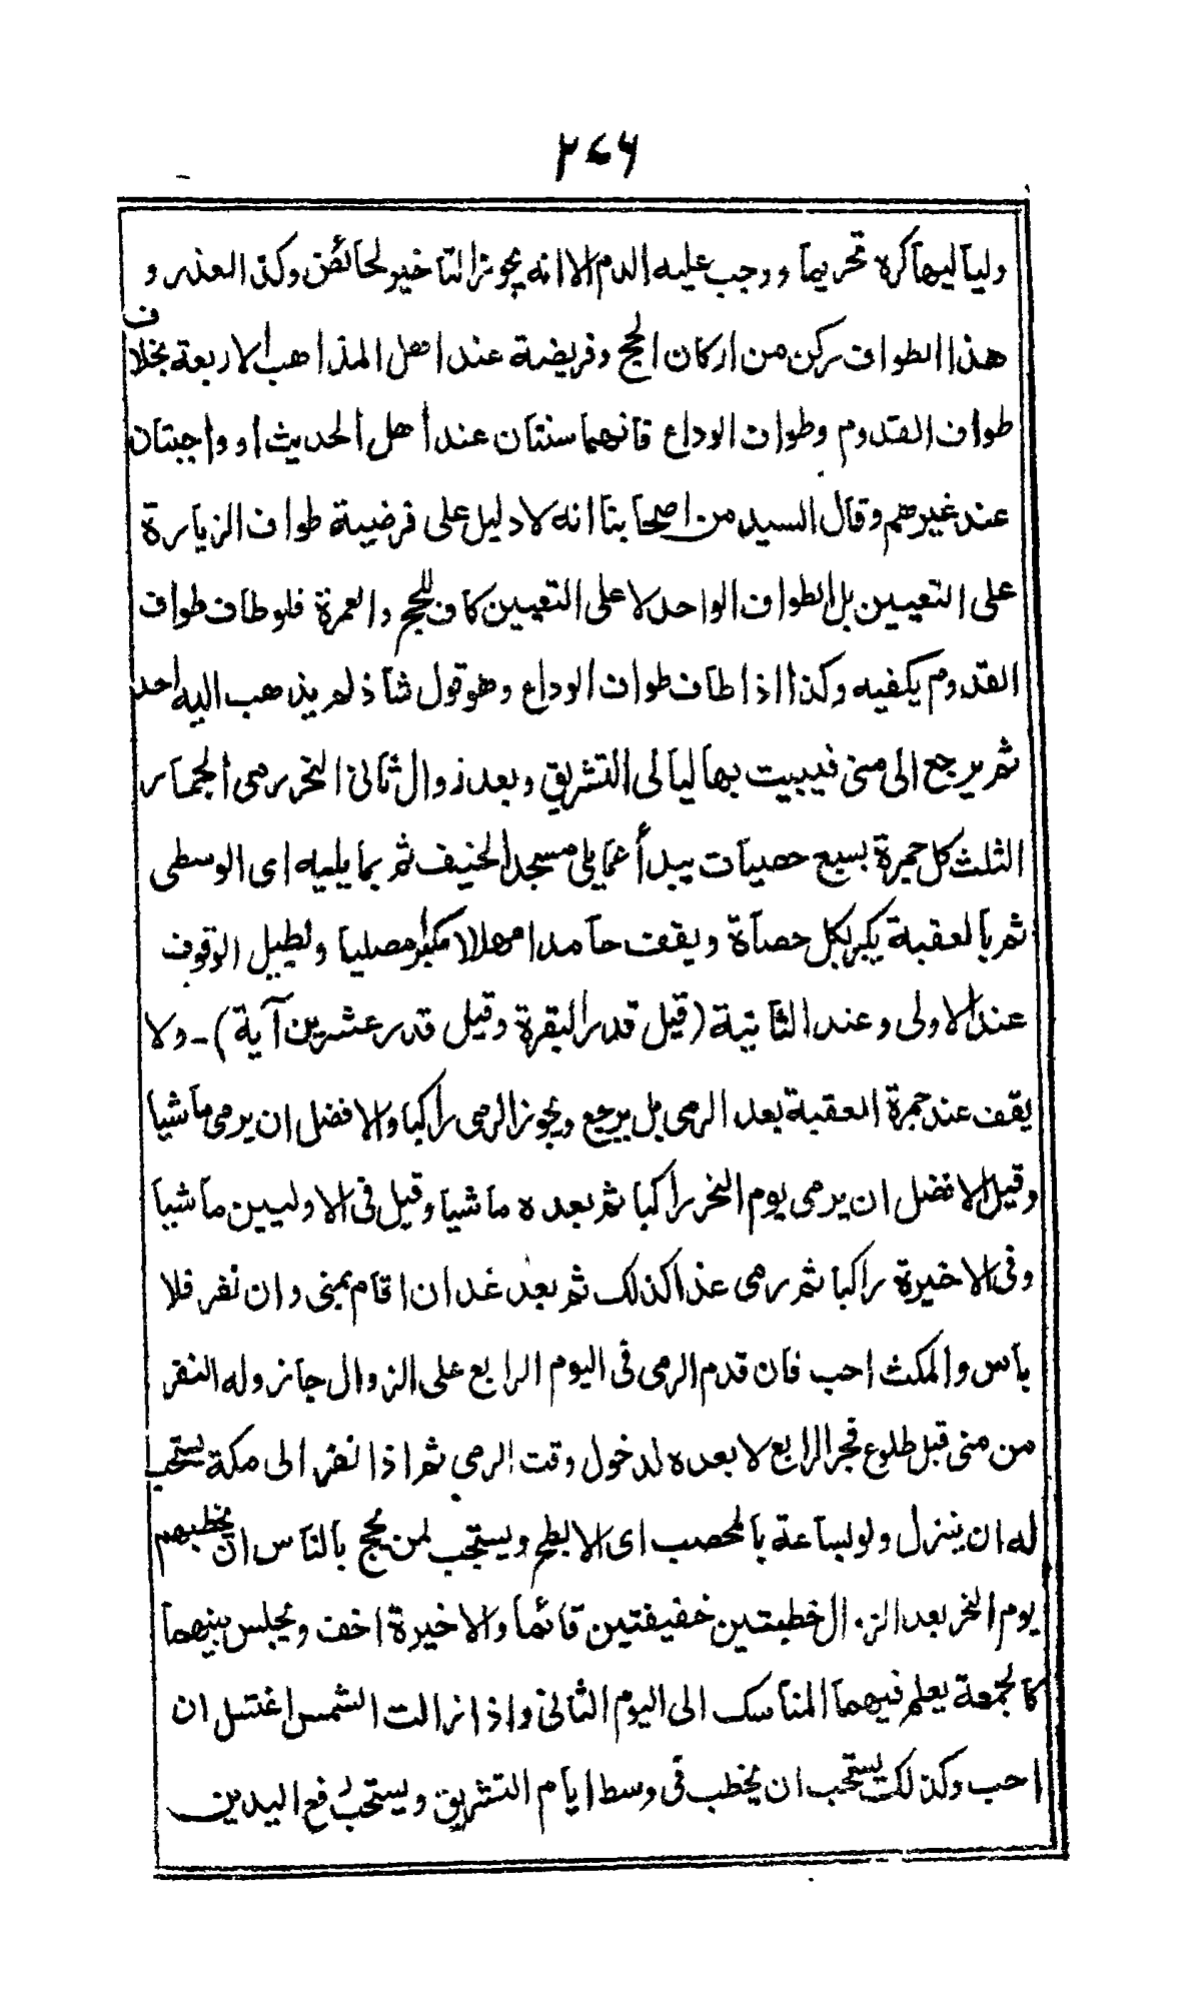 ٢٤٦
ولياليها كره تحريما ووجب عليه الدم الا انه يجوز التاخير لحائض وكذا العذر و
هذا الطواف ركن من اركان الحج وفريضة عند اهل المذاهب الاربعة بخلاف
طواف القدوم وطواف الوداع فانهما سنتان عند أهل الحديث او واجبتان
عند غيرهم وقال السيد من اصحابنا انه لا دليل على فرضية طواف الزيارة
على التعيين بل الطواف الواحد لا على التعيين كاف للحج والعمرة فلو طاف طواف
القدوم يكفيه وكذا اذا طاف طواف الوداع وهو قول شاذ لم يذهب اليه احد
ثم يرجع الى منى فيبيت بها ليالى التشريق وبعد زوال ثانى النحر رمى الجمار
الثلث كل جمرة بسبع حصيات يبدأ عما يلى مسجد الخيف ثم بما يليه اى الوسطى
ثم بالعقبة يكبر لكل حصاة ويقف حامدا مهللا مكبرا مصليا ولطيل الوقوف
عند الاولى وعند الثانية (قيل قدر البقرة وقيل قدر عشرين آية) ـ ولا
يقف عند جمرة العقبة بعد الرمى بل يرجع ويجوز الرمى راكبا والافضل ان يرمى ماشيا
وقيل الافضل ان يرمى يوم النحر راكبا ثم بعده ماشيا وقيل فى الاوليين ماشيا
وفى الاخيرة راكبا ثم رمى غدا كذلك ثم بعد غد ان اقام بمنى وان نفر فلا
باس والمكث احب فان قدم الرمى فى اليوم الرابع على الزوال جاز وله النفر
من منى قبل طلوع فجر الرابع لا بعده لدخول وقت الرمي ثم اذا نفر الى مكة يستحب
له ان ينزل ولو لساعة بالمحصب اى الابطح ويستحب لمن يحج بالناس ان يخطبهم
يوم النحر بعد الزوال خطبتين خفيفتين قائما والاخيرة اخف ويجلس بينهما
كالجمعة يعلم فيهما المناسك الى اليوم الثانى واذا زالت الشمس اغتسل ان
احب وكذلك يستحب ان يخطب فى وسط ايام التشريق ويستحب رفع اليدين